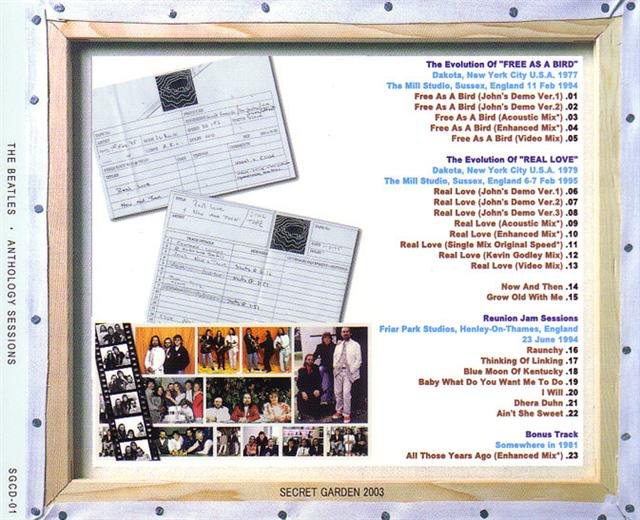 THE BEATLES • ANTHOLOGY SESSIONS
SGCD-01
The Evolution Of "FREE AS A BIRD"
Dakota, New York City U.S.A. 1977
The Mill Studio, Sussex, England 11 Feb 1994
Free As A Bird (John's Demo Ver.1) .01
Free As A Bird (John's Demo Ver.2) .02
Free As A Bird (Acoustic Mix*) .03
Free As A Bird (Enhanced Mix*) .04
Free As A Bird (Video Mix) .05
The Evolution Of "REAL LOVE"
Dakota, New York City U.S.A. 1979
The Mill Studio, Sussex, England 6-7 Feb 1995
Real Love (John's Demo Ver.1) .06
Real Love (John's Demo Ver.2) .07
Real Love (John's Demo Ver.3) .08
Real Love (Acoustic Mix*) .09
Real Love (Enhanced Mix*) .10
Real Love (Single Mix Original Speed*) .11
Real Love (Kevin Godley Mix) .12
Real Love (Video Mix) .13
Now And Then .14
Grow Old With Me .15
Reunion Jam Sessions
Friar Park Studios, Henley-On-Thames, England
23 June 1994
Raunchy .16
Thinking Of Linking .17
Blue Moon Of Kentucky .18
Baby What Do You Want Me To Do .19
I Will .20
Dhera Duhn .21
Ain't She Sweet .22
Bonus Track
Somewhere in 1981
All Those Years Ago (Enhanced Mix*) .23
Real Love
Now And Then
SECRET GARDEN 2003